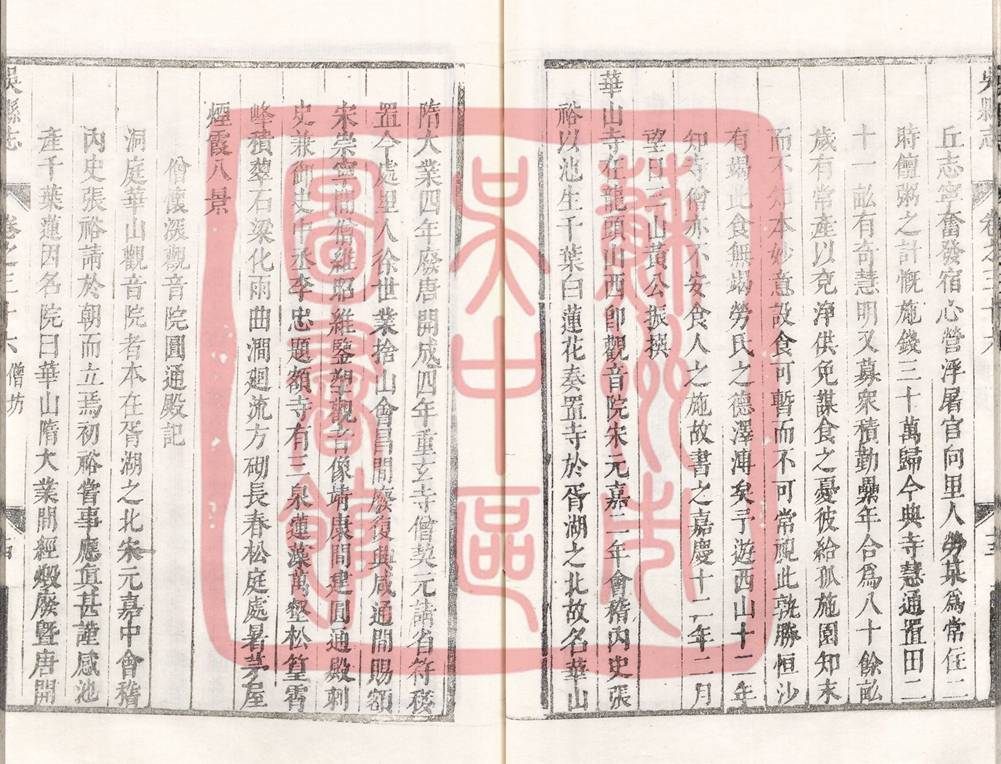 吳縣志 卷之三十六
丘志寧奮發宿心營浮屠宮向里人勞某爲常住二
時饘粥之計慨施錢三十萬歸今典寺慧通置田二
十一畝有奇慧明又募衆積勤纍年合爲八十餘畝
歲有常產以充淨供免謀食之憂彼給孤施園知末
而不知本妙意設食可暫而不可常視此孰勝恒沙
有竭此食無竭勞氏之德澤溥矣予遊西山十二年
知寺僧亦不安食人之施故書之嘉慶十二年二月
望日二山黃公振撰
華山寺在龍頭山西卽觀音院宋元嘉二年會稽內史張
裕以池生千葉白蓮花奏置寺於胥湖之北故名華山
隋大業四年廢唐開成四年重玄寺僧契元請省符移
置今處里人徐世業捨山會昌間廢復興咸通間賜額
宋崇寧間僧維昭維鑒塑觀音像靖康間建圓通殿刺
史兼御史中丞李忠題額寺有三泉蓮藻萬壑松篁霄
峰積翠石梁化雨曲澗廻流方砌長春松庭處暑茅屋
煙霞八景
僧懷深觀音院圓通殿記
洞庭華山觀音院者本在胥湖之北宋元嘉中會稽
內史張裕請於朝而立焉初裕嘗事應眞甚謹感池
產千葉蓮因名院曰華山隋大業間經燬廢曁唐開
吳縣志 卷之三十六 僧坊
蘇州市
吳中區
圖書館